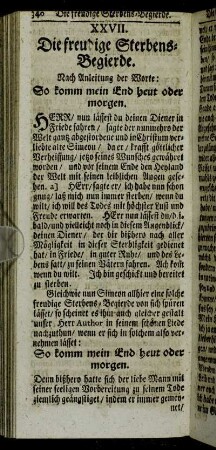 340 Die freudige Sterbens-Begierde.
XXVII.
Die freudige Sterbens-
Begierde.
Nach Anleitung der Worte:
So komm mein End heut oder
morgen.
HERR/ nun lässest du deinen Diener in
Friede fahren/ sagte der nunmehro der
Welt gantz abgestorbene und in Christum ver-
liebte alte Simeon/ da er/ krafft göttlicher
Verheissung/ jetzo seines Wunsches gewähret
worden/ und vor seinem Ende den Heyland
der Welt mit seinen leiblichen Augen gese-
hen. a) HErr/ sagte er/ ich habe nun schon
gnug/ laß mich nun immer sterben/ wenn du
wilt/ ich will des Todes mit höchster Lust und
Freude erwarten. HErr nun lässest du/ d.i.
bald/ und vielleicht noch in diesem Augenblick/
deinen Diener/ der dir bißhero nach aller
Möglichkeit in dieser Sterbligkeit gedienet
hat/ in Friede/ in guter Ruhe/ und des Le-
bens satt/ zu seinen Vätern fahren. Ach ko
wenn du wilt. Ich bin geschickt und bereitet
zu sterben.
Gleichwie nun Simeon allhier eine solche
freudige Sterbens-Begierde von sich spüren
lässet/ so scheinet es ihm auch gleicher gestalt
unser Herr Author in seinem schönen Liede
nachzuthun/ wenn er sich in solchem also ver-
nehmen lässet:
So komm mein End heut oder
morgen.
Denn bißhero hatte sich der liebe Mann mit
seiner seeligen Vorbereitung zu seinem Tode
ziemlich geängstiget/ indem er immer gemey-
net/